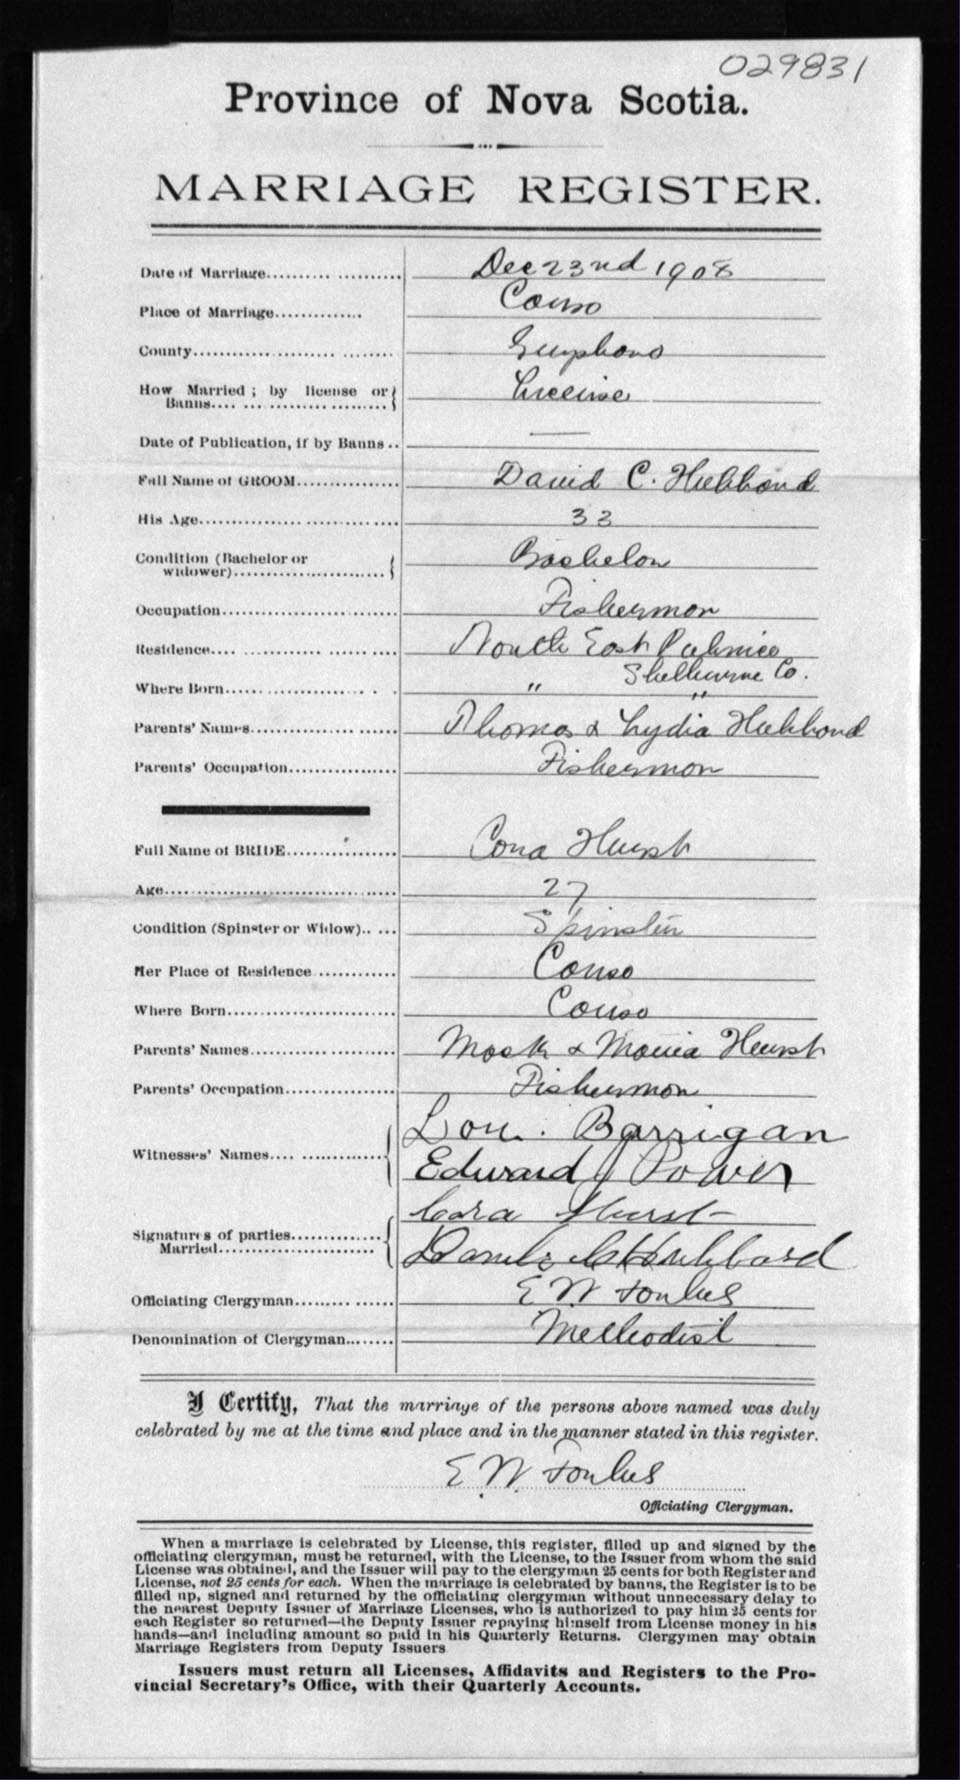 029831
Province of Nova Scotia.
MARRIAGE REGISTER.
Date of Marriage.................. Dec 23rd 1908
Place of Marriage............. Canso
County................................ Guysboro
How Married ; by license or License
Banns.... .... ..................
Date of Publication, if by Banns .. —
Full Name of GROOM............... David C. Hubbard
His Age.............................. 33
Condition (Bachelor or Bachelor
widower)........................
Occupation.......................... Fisherman
Residence.... .................... North East Pubnico
Shelburne Co.
Where Born......................... " "
Parents' Names..................... Thomas & Lydia Hubbard
Parents' Occupation................ Fisherman
Full Name of BRIDE................. Cora Hurst
Age.................................. 27
Condition (Spinster or Widow)..... Spinster
Her Place of Residence ............ Canso
Where Born......................... Canso
Parents' Names..................... & Maria Hurst
Parents' Occupation................ Fisherman
Lou. Barrigan
Witnesses' Names.... .............
Edward J Power
Cora Hurst
Signatures of parties..............
Married.......................
C Hubbard
Officiating Clergyman.............. E W
Denomination of Clergyman.......... Methodist
I Certify, That the marriage of the persons above named was duly
celebrated by me at the time and place and in the manner stated in this register.
E. W.
Officiating Clergyman.
When a marriage is celebrated by License, this register, filled up and signed by the
officiating clergyman, must be returned, with the License, to the Issuer from whom the said
License was obtained, and the Issuer will pay to the clergyman 25 cents for both Register and
License, not 25 cents for each. When the marriage is celebrated by banns, the Register is to be
filled up, signed and returned by the officiating clergyman without unnecessary delay to
the nearest Deputy Issuer of Marriage Licenses, who is authorized to pay him 25 cents for
each Register so returned—the Deputy Issuer repaying himself from License money in his
hands—and including amount so paid in his Quarterly Returns. Clergymen may obtain
Marriage Registers from Deputy Issuers
Issuers must return all Licenses, Affidavits and Registers to the Pro-
vincial Secretary's Office, with their Quarterly Accounts.